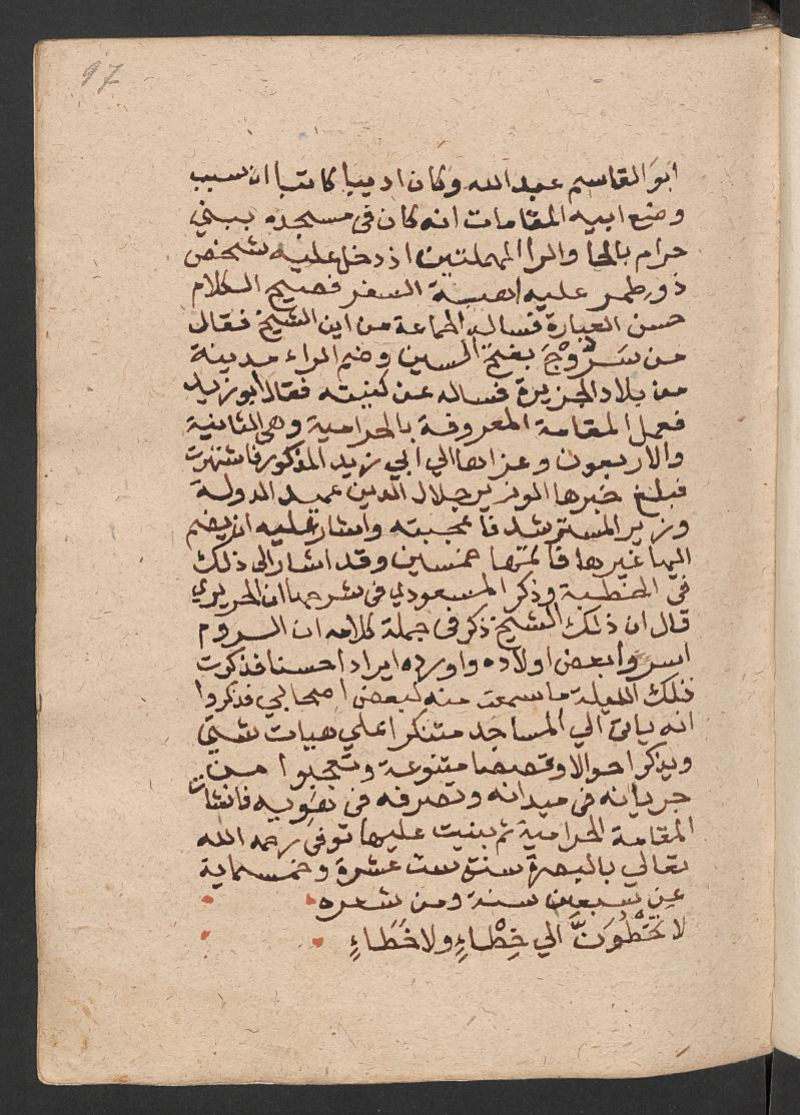 97
ابوَ القاسم عبد الله وكان اديبا كاتبا ان سبب
وضع ابيه المقامات انه كان فى مسجده ببني
حرام بالحا والرا المهملتين اذ دخل عليه شخص
ذو طمر عليه اهبة السفر فصيح الكلام
حسن العبارة فساله الجماعة من اين الشيخ فقال
من سَرُوْجَ بفتح السين وضم الراء مدينة
من بلاد الجزيرة فساله عن كنيته فقال ابو زيد
فعمل المقامة المعروفة بالحرامية وهي الثانية
والاربعون وعزاها الي ابي زيد المذكور فاشتهرت
فبلغ خبرها الوزير جلال الدين عميد الدولة
وزير المسترشد فاعجبته واشار عليه ان يضم
اليها غيرها فاتمها خمسين وقد اشار الى ذلك
في الخطبة وذكر المسعودي فى شرحها ان الحريري
قال ان ذلك الشيخ ذكر فى جملة كلامه ان الروم
اسروا بعض اولاده واورده ايرادا حسنا فذكرت
تلك الليلة ما سمعت منه لبعض اصحابي فذكروا
انه ياتى الي المساجد متنكرا على هيات شتى
ويذكر احوالا وقصصا متنوعة وتعجبوا من
جريانه فى ميدانه وتصرفه فى فانشات
المقامة الحرامية ثم بنيت عليها توفى رحمه الله
تعالي بالبصرة سنة ست عشرة وخمسماية
عن سبعين سنة ومن شعره
لا تَخْطُوَنَّ الي خِطْاءٍ ولا خَطَاءٍ